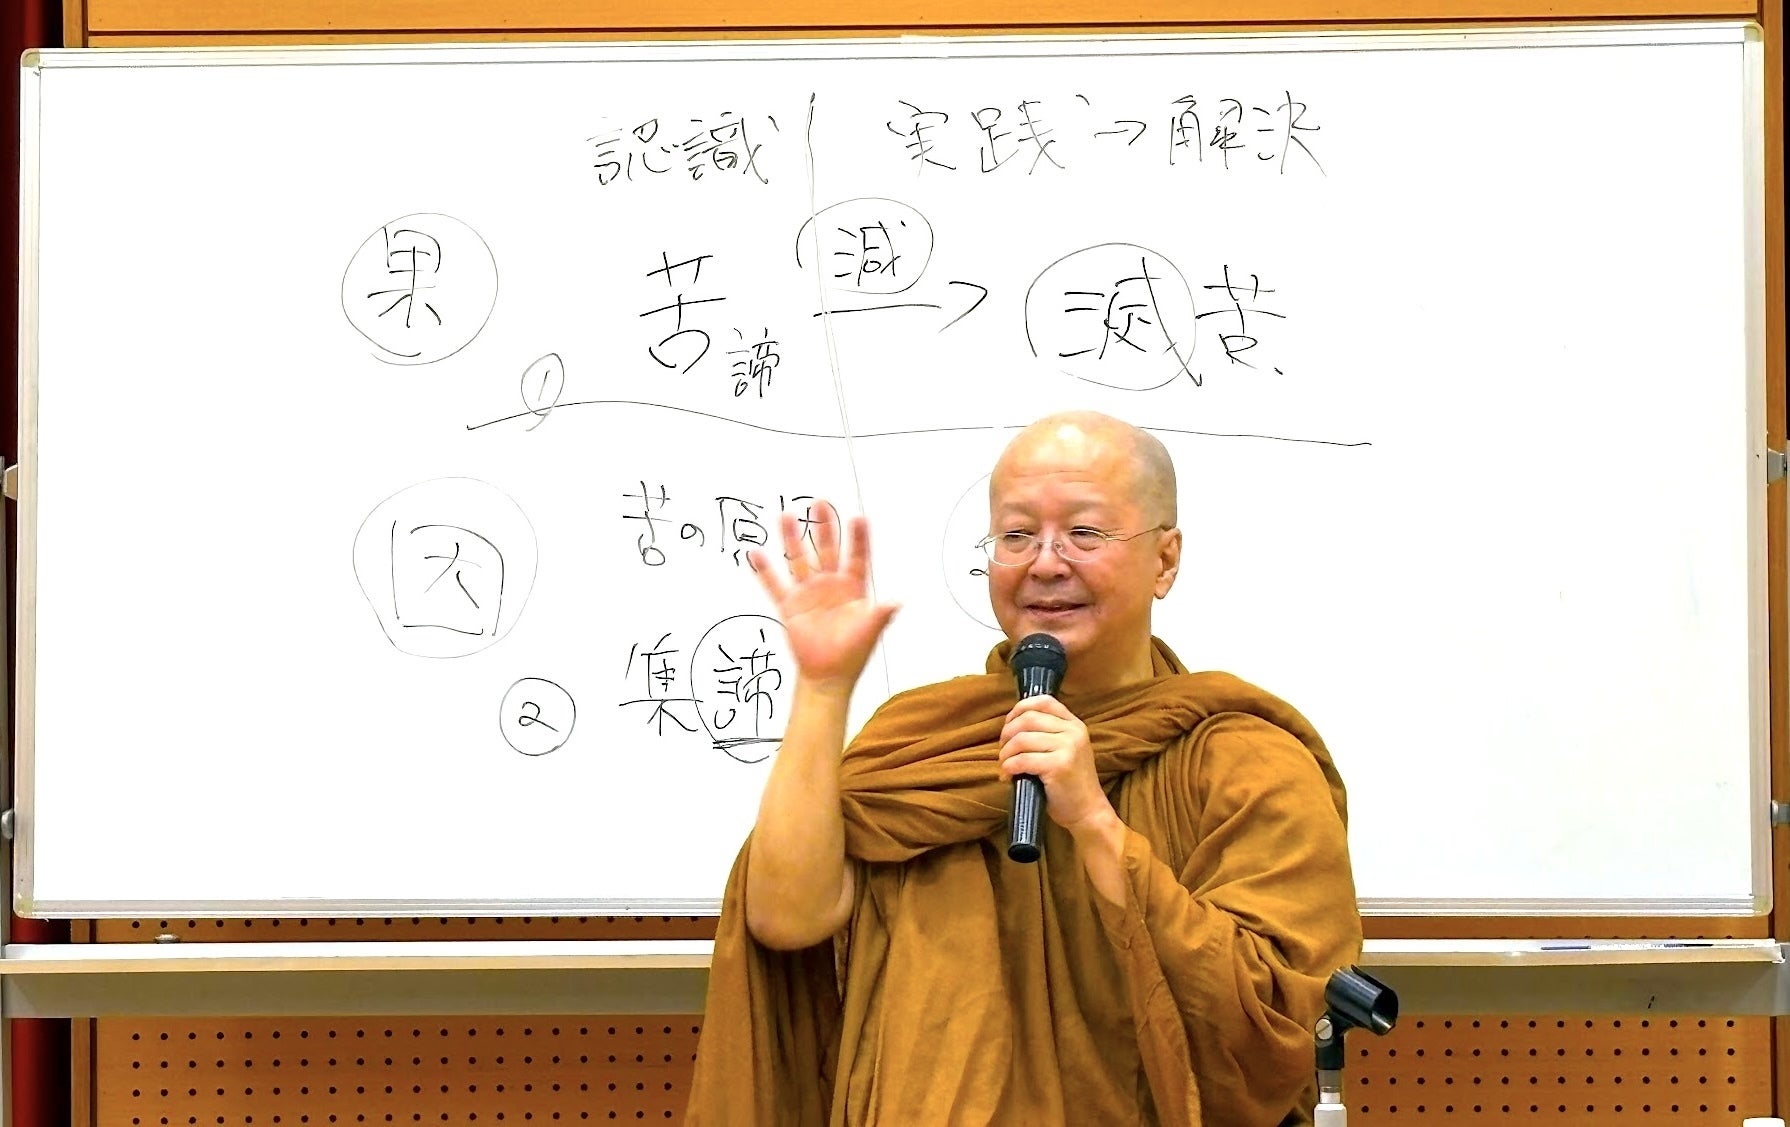 認識 実践→解決
果 苦諦 減→ 滅苦
①
因 苦の原因
② 集諦